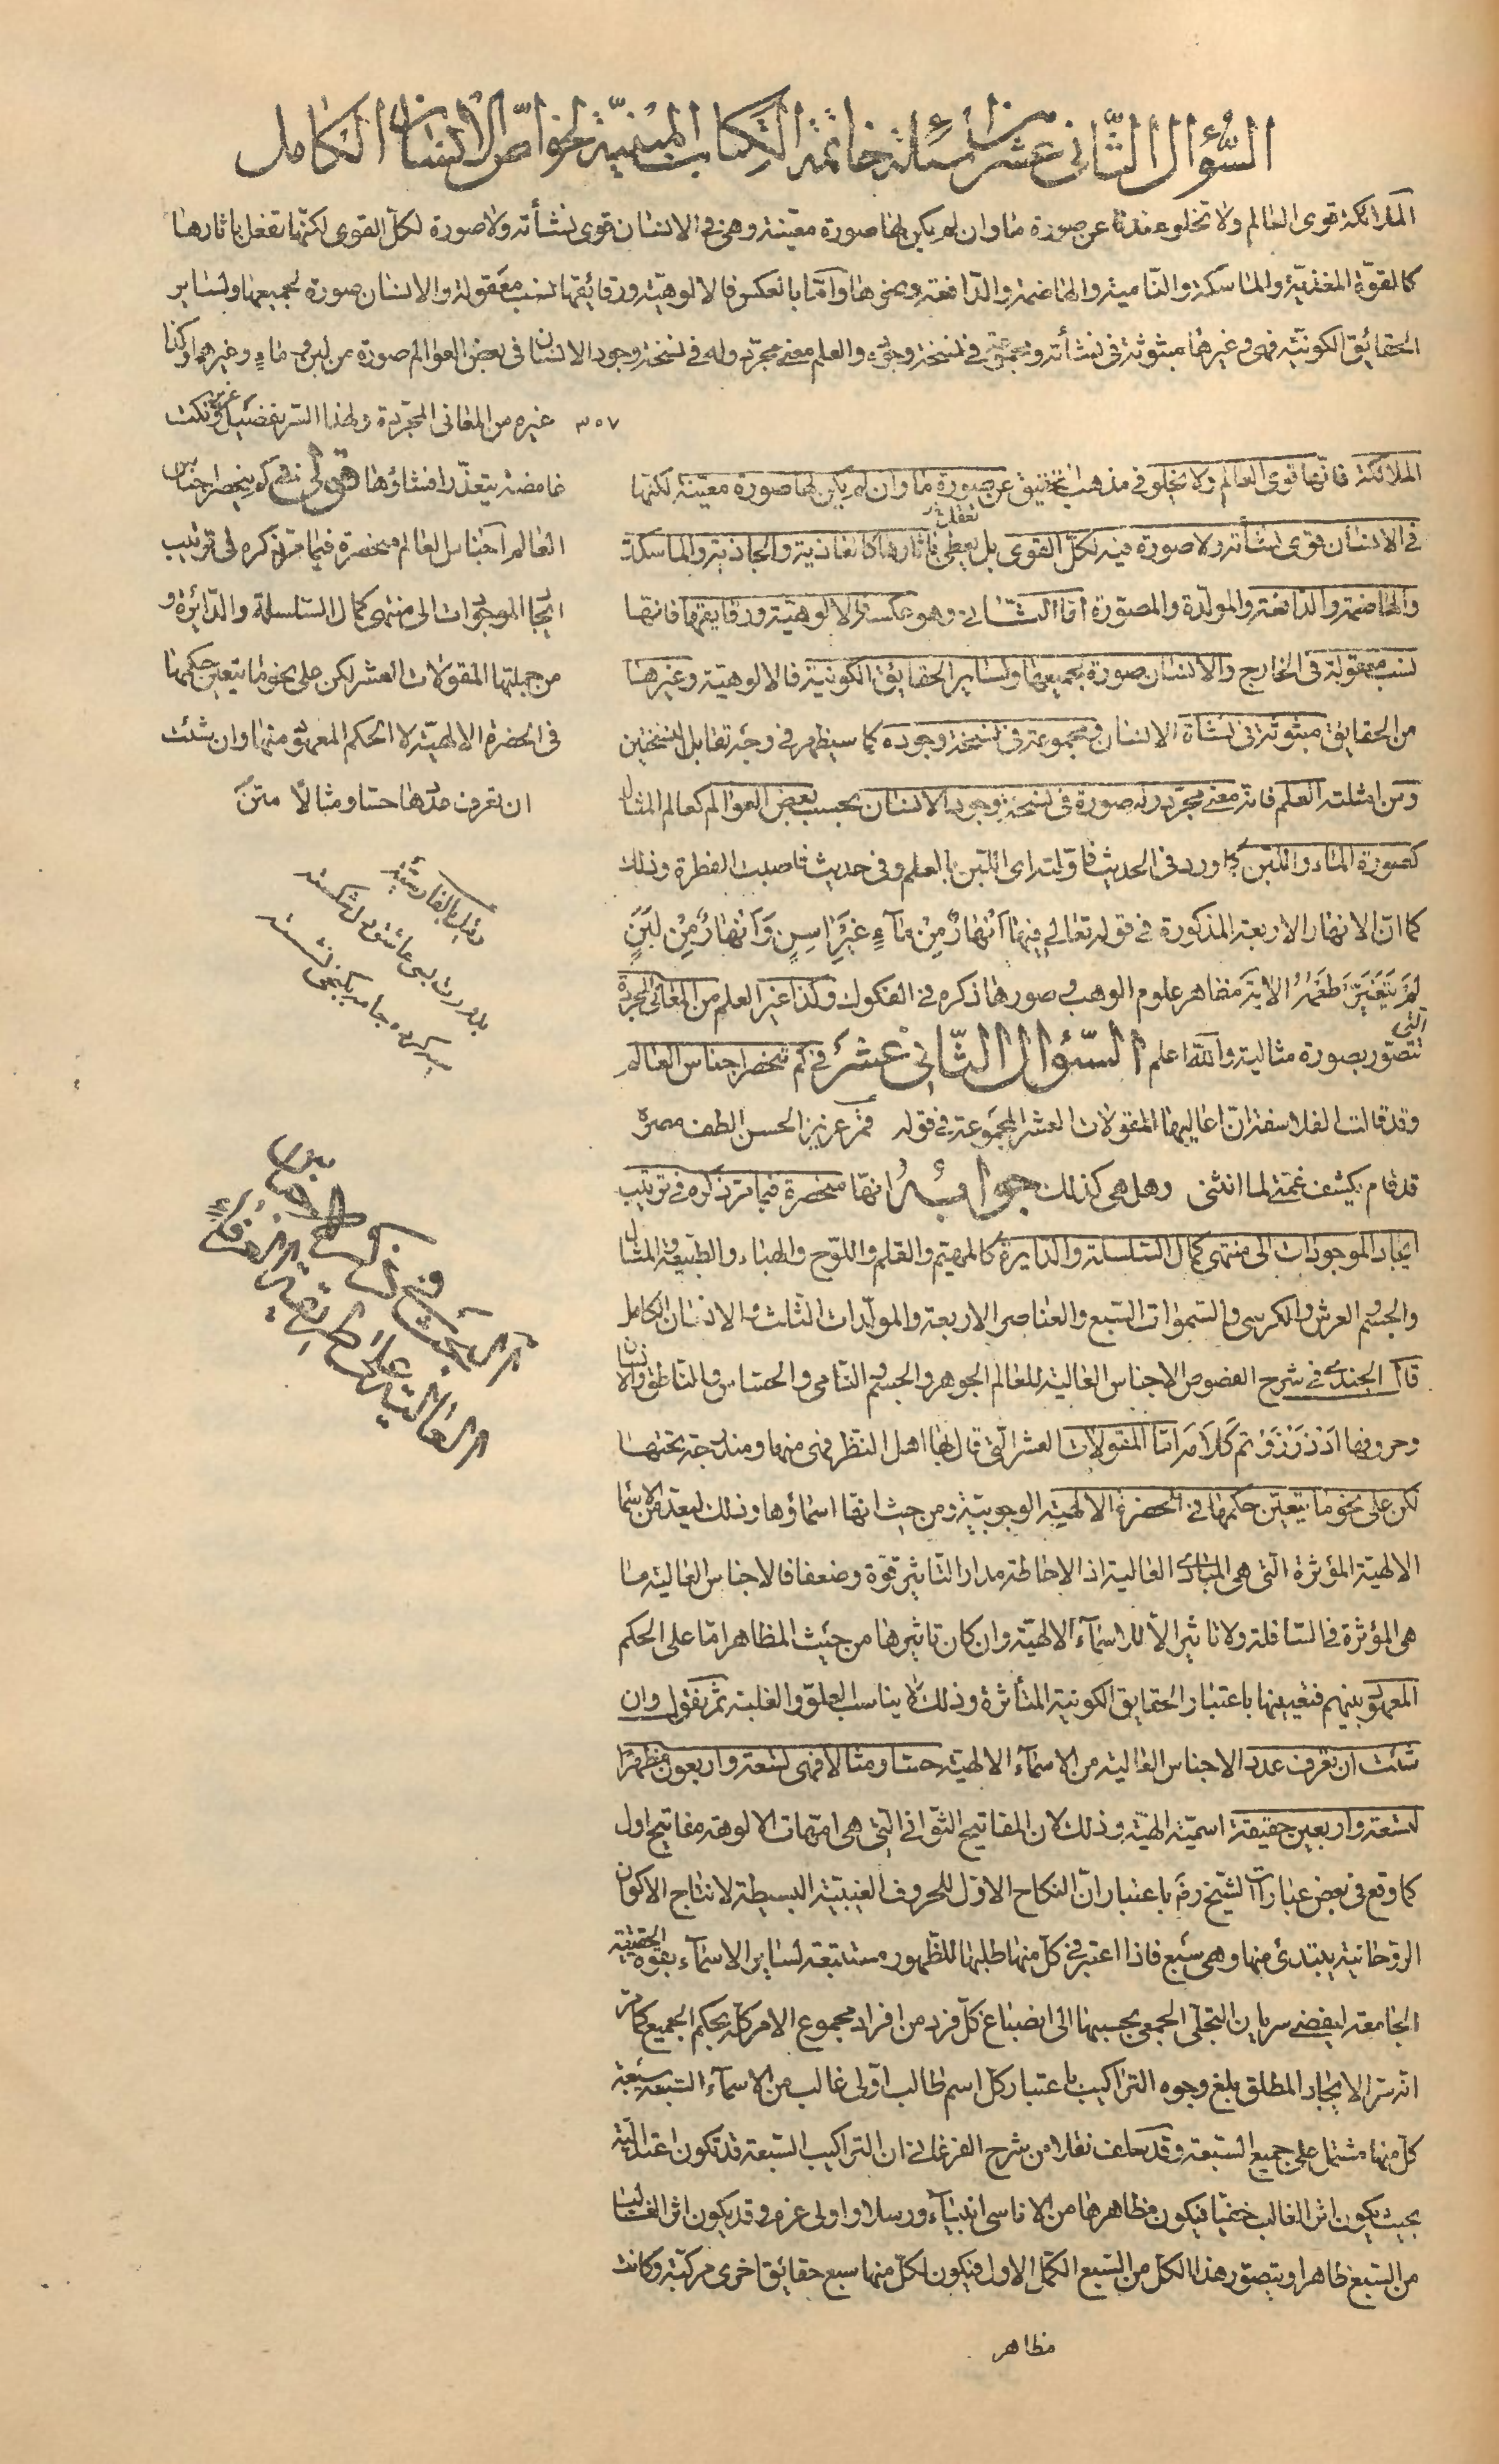 السؤال الثاني عشر من اسئلة خاتمة الكتاب المبينة لخواص الانسان الكامل
الملائكة قوى العالم ولا تخلو عندنا عن صورة ما وان لم يكن لها صورة معينة وهى فى الانسان قوى نشأته ولا صورة لكل القوى لكنها تعقل باثارها
كالقوة المغذية والماسكة والنامية والهاضمة والدافعة ونحوها واما بالعكس فالالوهية ورقائقها نسب معقولة والانسان صورة لجميعها ولساير
الحقائق الكونية فهى وغيرها مبثوثة فى نشأته ومجموعة فى نسخة وجوده والعلم معنى مجرد وله فى نسخة وجود الانسان فى بعض العوالم صورة من لبن وماء وغيرهما وكذا
غيره من المعانى المجردة ولهذا السر تفصيل غريب ونكت
٣٥٧
غامضة يتعذر افشاؤها قولى فى كم ينحصر اجناس
العالم اجناس العالم منحصرة فيما مر ذكره فى ترتيب
ايجاد الموجودات الى منتهى كمال السلسلة والدائرة و
من جملتها المقولات العشر لكن على نحو ما يتعين حكمها
فى الحضرة الالهية لا الحكم المعهود منها وان شئت
ان تعرف عددها حسا ومثالا متن
الملائكة فانها قوى العالم ولا يخلو فى مذهب التحقيق عن صورة ما وان لم يكن لها صورة معينة لكنها
فى الانسان قوى نشأته ولا صورة فيه لكل القوى بل تعقل باثارها كالغاذية والجاذبة والماسكة
والهاضمة والدافعة والمولدة والمصورة اما الثانى وهو عكسه فالالوهية ورقايقها فانها
نسب معقولة فى الخارج والانسان صورة لجميعها ولساير الحقايق الكونية فالالوهية وغيرها
من الحقايق مبثوثة فى نشأة الانسان ومجموعة فى نسخة وجوده كما سيظهر فى وجه تقابل النسختين
ومن امثلته العلم فانه معنى مجرد وله صورة فى نسخة وجود الانسان بحسب بعض العوالم كعالم المثال
كصورة الماء واللبن كما ورد فى الحديث فاولته اى اللبن بالعلم وفى حديث فاصبت الفطرة وذلك
كما ان الانهار الاربعة المذكورة فى قوله تعالى فِيهَا أَنْهَارٌ مِنْ مَآءٍ غَيْرِ اسِنٍ وَأَنْهَارٌ مِنْ لَبَنٍ
لَمْ يَتَغَيَّرْ طَعْمُهُ الاية مظاهر علوم الوهب وصورها ذكره فى الفكوك وكذا غير العلم من المعانى المجردة
التى تتصور بصورة مثالية والله اعلم السؤال الثانى عشر فى كم تنحصر اجناس العالم
وقد قالت الفلاسفة ان اعاليها المقولات العشر المجموعة فى قوله قمر عزيز الحسن الطف مصره
قد قام يكشف غمتى لما انثنى وهل هى كذلك جوابه انها منحصرة فيما مر ذكره فى ترتيب
ايجاد الموجودات الى منتهى كمال السلسلة والدايرة كالمهيم والقلم واللوح والهباء والطبيعة والمثال
والجسم والعرش والكرسى والسموات السبع والعناصر الاربعة والمولدات الثلث والانسان الكامل
قال الجندى فى شرح الفصوص الاجناس العالية للعالم الجوهر والجسم النامى والحساس والناطق والانسان
اما المقولات العشر التى قال بها اهل النظر فهى منها ومندرجة تحتها
لكن على نحو ما يتعين حكمها فى الحضرة الالهية الوجوبية ومن حيث انها اسماؤها وذلك ليعد من الاسماء
الالهية المؤثرة التى هى المبادى العالية اذ الاحاطة مدار التاثير قوة وضعفا فالاجناس العالية ما
هى المؤثرة فى السافلة ولا تاثير الا للاسماء الالهية وان كان تاثيرها من حيث المظاهر اما على الحكم
المعهود بينهم فتعيينها باعتبار الحقايق الكونية المتأثرة وذلك لا يناسب العلو والغلبة ثم يقول وان
شئت ان تعرف عدد الاجناس العالية من الاسماء الالهية حسا ومثالا فهى تسعة واربعون مظهرا
لتسعة واربعين حقيقة اسمية الهية وذلك لان المفاتيح الثوانى التى هى امهات الالوهة مفاتيح اول
كما وقع فى بعض عبارات الشيخ رضه باعتبار ان النكاح الاول للحروف الغيبية البسيطة لانتاج الاكوان
الروحانية يبتدئ منها وهى سبع فاذا اعتبر فى كل منها طلبها للظهور مستتبعة لساير الاسماء بقوة الحقيقة
الجامعة ليفضى سريان التجلى الجمعى بحسبها الى انصباغ كل فرد من افراد مجموع الامر كله بحكم الجميع كما مر
انه سر الايجاد المطلق بلغ وجوه التراكيب باعتبار كل اسم طالب اولى غالب من الاسماء السبعة سبعة
كل منها مشتمل على جميع السبعة وقد سلف نقلا من شرح الفرغانى ان التراكيب السبعة قد تكون اعتدالية
بحيث يكون اثر الغالب خفيا فيكون مظاهرها من الاناسى انبياء ورسلا واولى عزم وقد يكون اثر الغالب
من السبع ظاهرا ويتصور هذا لكل من السبع الكمل الاول فيكون لكل منها سبع حقائق اخرى مركبة وكانت
مظاهر